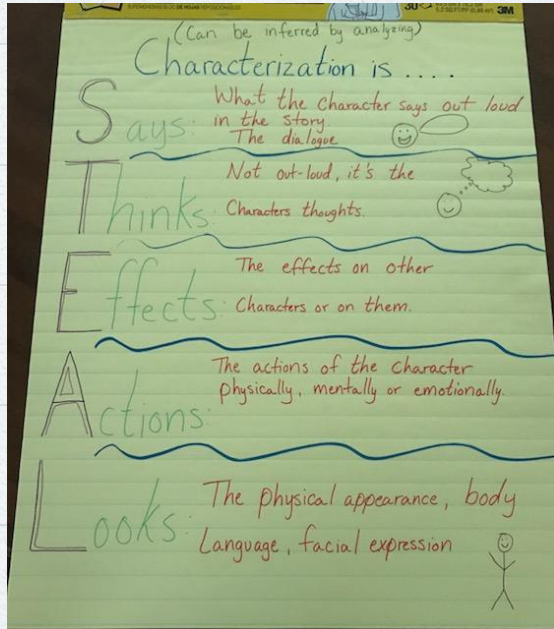 (Can be inferred by analyzing)
Characterization is ....
Says: What the Character says out loud
in the story.
The dialogue
Thinks: Not out-loud, it's the
Characters thoughts.
Effects: The effects on other
Characters or on them.
Actions: The actions of the character
physically, mentally or emotionally.
Looks: The physical appearance, body
Language, facial expression
3M